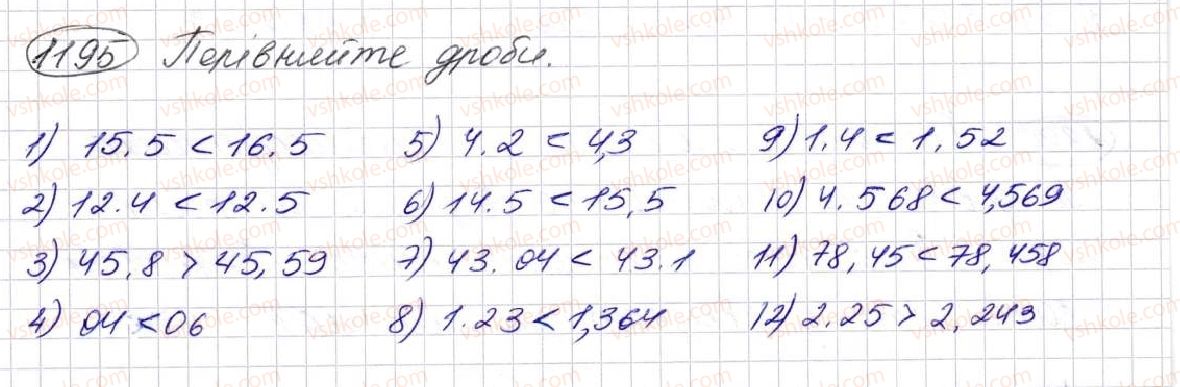 1195 Порівняйте дроби.
1) 15.5 < 16.5
2) 12.4 < 12.5
3) 45.8 > 45,59
4) 04 < 06
5) 4.2 < 4,3
6) 14.5 < 15,5
7) 43.04 < 43.1
8) 1.23 < 1,364
9) 1.4 < 1,52
10) 4.568 < 4,569
11) 78,45 < 78,458
12) 2.25 > 2,243